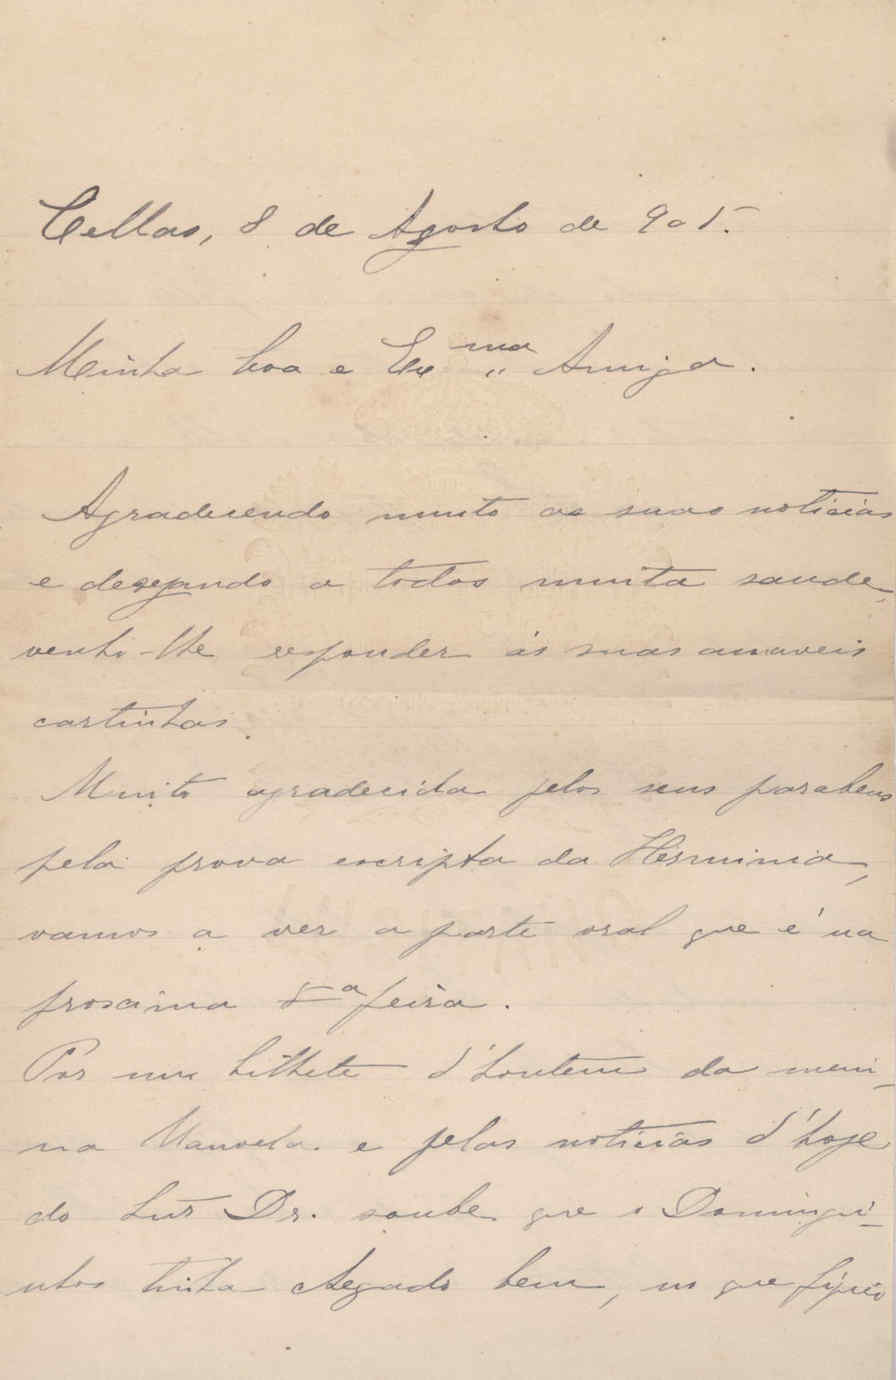 Cellas, 8 de Agosto de 905.
Minha boa e Ex.ma Amiga.
Agradecendo muito as suas noticias
e desejando a todos muita saude,
venho-lhe responder ás suas amaveis
cartinhas.
Muito agradecida pelos seus parabens
pela prova escripta da Herminia,
vamos a ver a parte oral que é na
proxima 5ª feira.
Por um bilhete d'hontem da meni-
na Manoela e pelas noticias d'hoje
do Snr Dr. soube que o Domingui-
nhos tinha chegado bem, no que fiquei